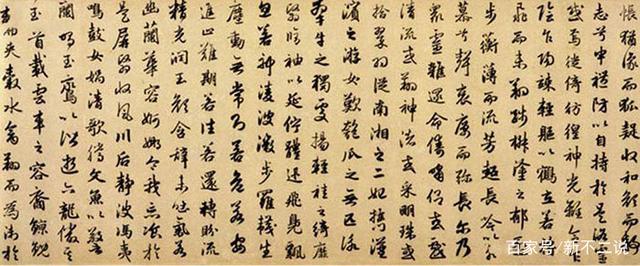 悵猶豫而狐疑收和顏而靜
志兮申禮防以自持於是洛靈
感焉徙倚彷徨神光離合乍
陰乍陽竦輕軀以鶴立若將
飛而未翔踐椒塗之郁烈
步蘅薄而流芳超長吟以永
慕兮聲哀厲而彌長爾乃
眾靈雜遝命儔嘯侶或戲
清流或翔神渚或采明珠或
拾翠羽從南湘之二妃攜漢
濱之游女歎匏瓜之無匹詠
牽牛之獨處揚輕袿之綺靡
翳脩袖以延佇體迅飛鳧飄
忽若神凌波微步羅襪生
塵動無常則若危若安
進止難期若往若還轉眄流
精光潤玉顏含辭未吐氣若
幽蘭華容婀娜令我忘餐於
是屏翳收風川后靜波馮夷
鳴鼓女媧清歌騰文魚以警
乘鳴玉鸞以偕逝六龍儼其
齊首載雲車之容裔鯨鯢
踊而夾轂水禽翔而為衛於
百家号/新不二说